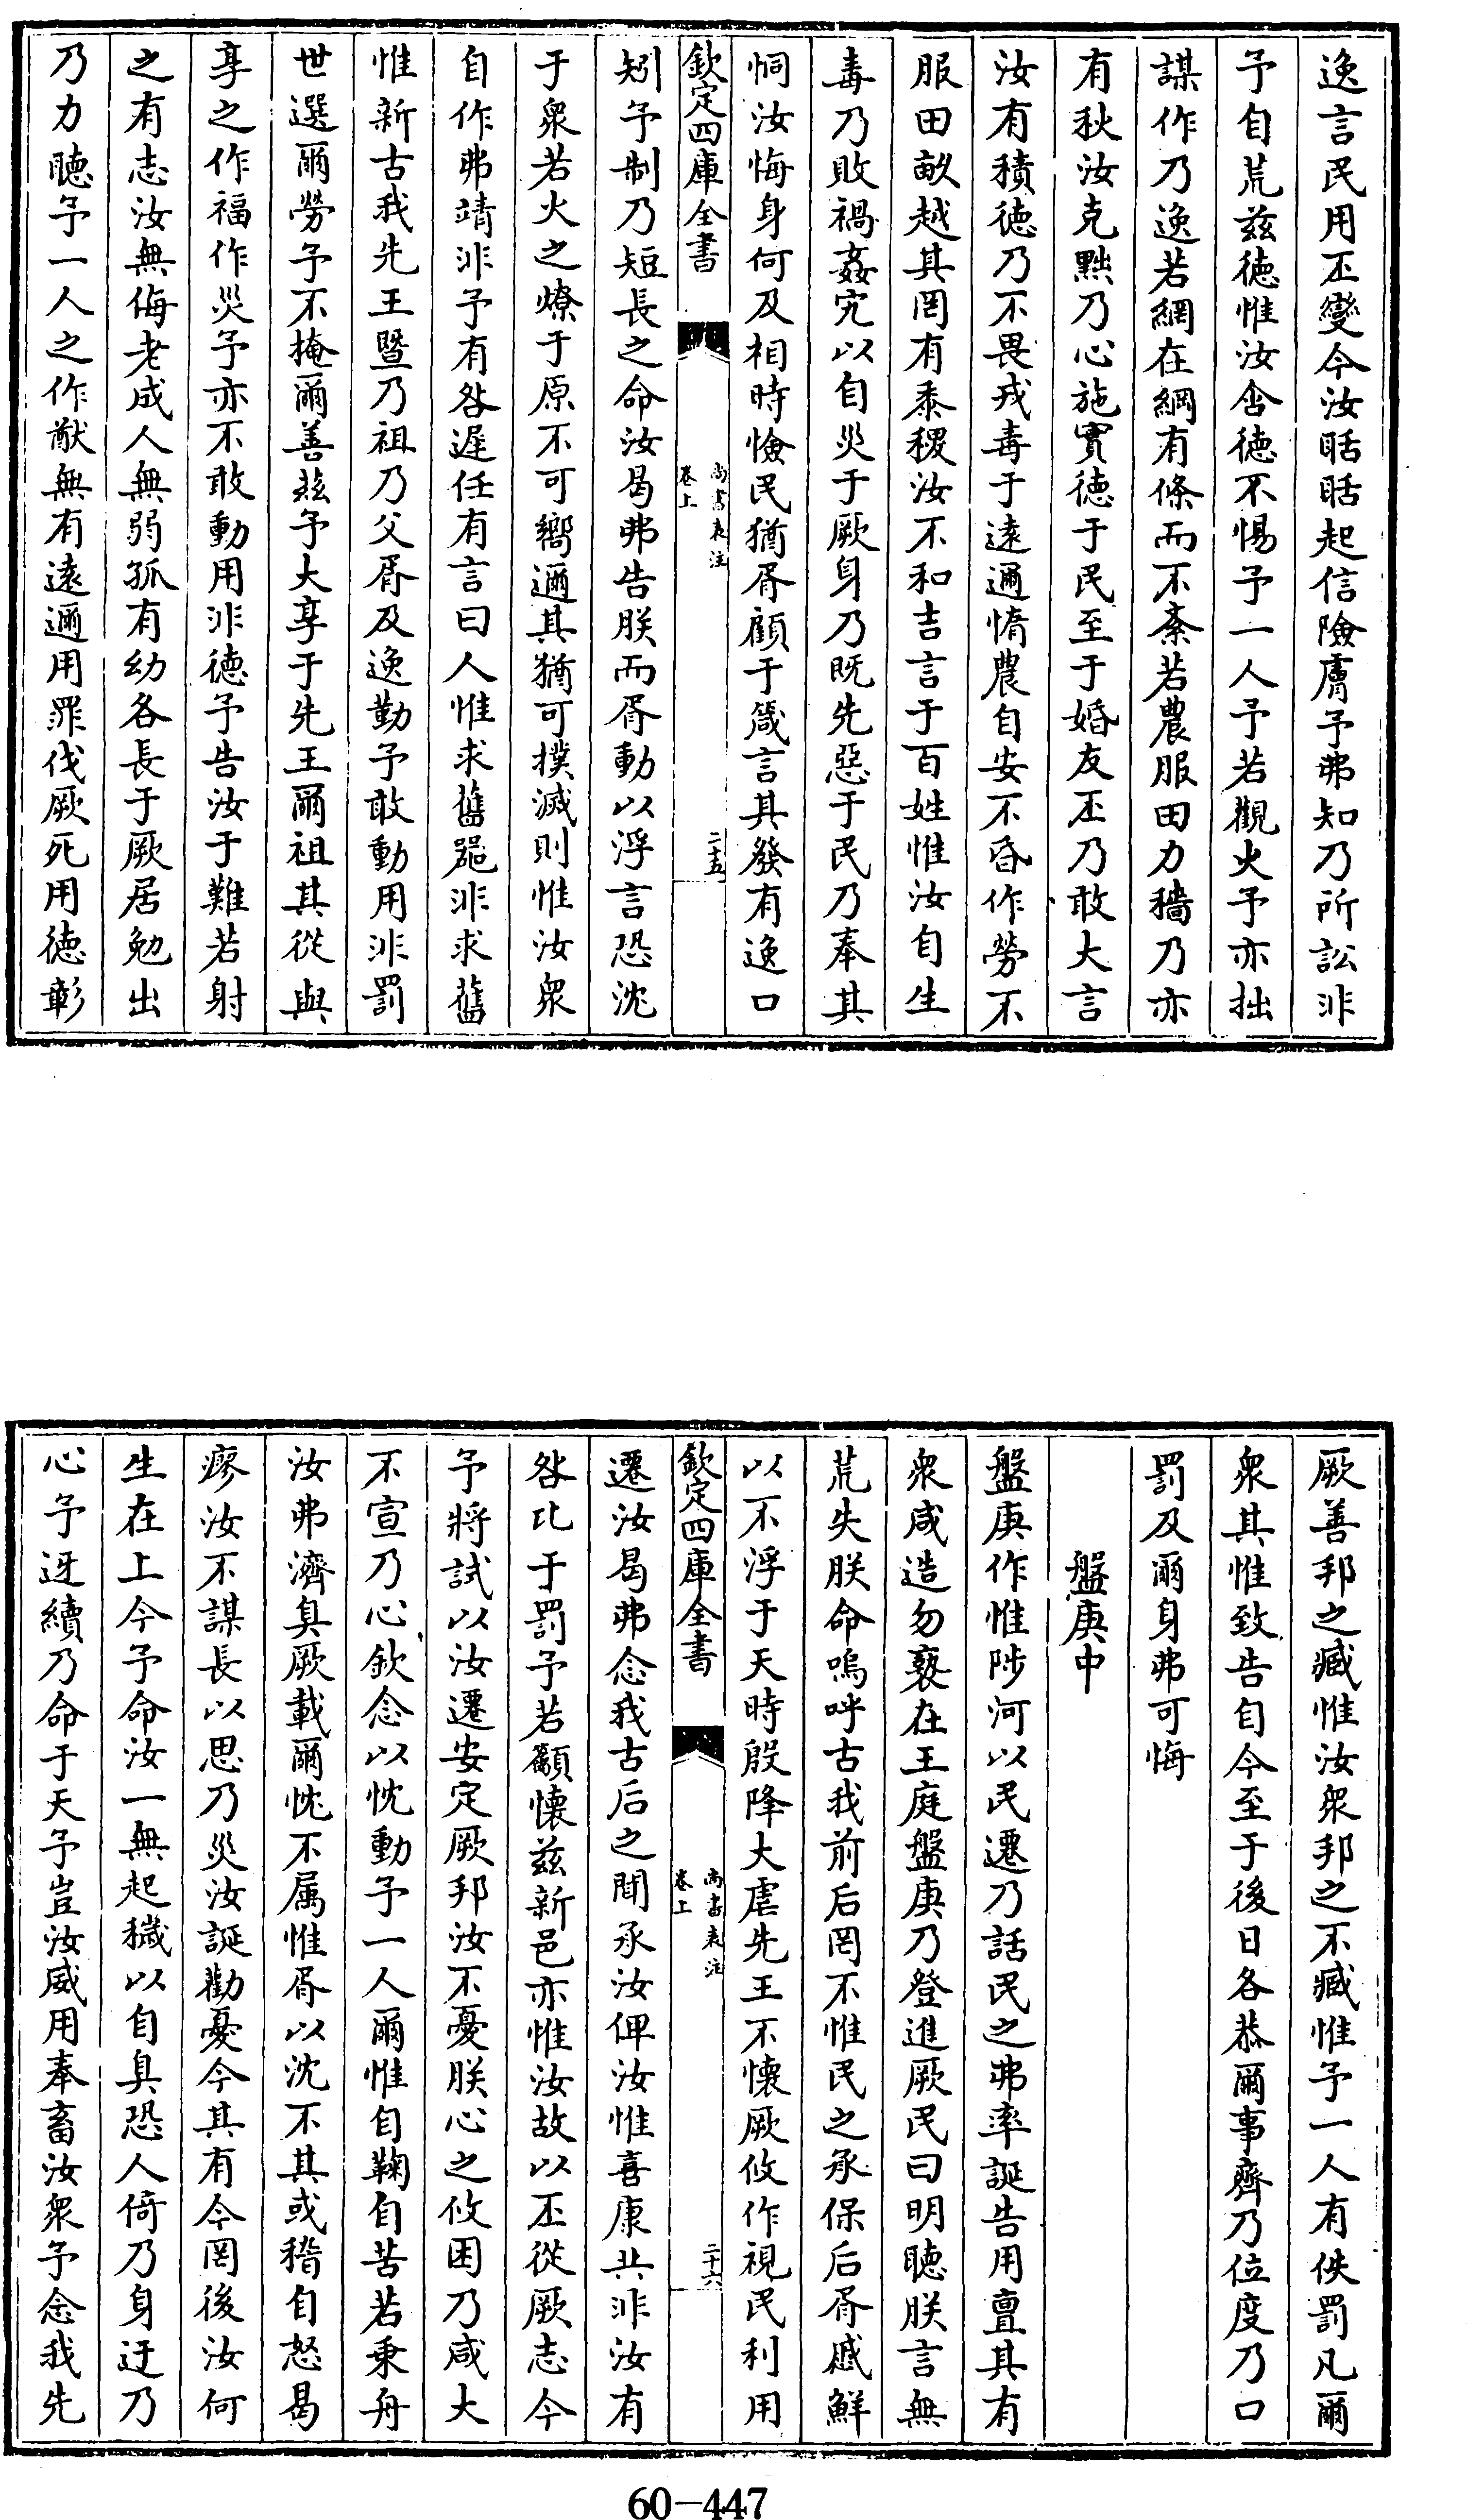 逸言民用丕變今汝聒聒起信險膚予弗知乃所訟非
予自荒兹德惟汝含德不惕予一人予若觀火予亦拙
謀作乃逸若網在綱有條而不紊若農服田力穡乃亦
有秋汝克黜乃心施實德于民至于婚友丕乃敢大言
汝有積德乃不畏戎毒于遠邇惰農自安不昏作勞不
服田畝越其罔有黍稷汝不和吉言于百姓惟汝自生
毒乃敗禍姦宄以自災于厥身乃既先惡于民乃奉其
恫汝悔身何及相時憸民猶胥顧于箴言其發有逸口
欽定四庫全書 尚書表注 卷上 二十五
矧予制乃短長之命汝曷弗告朕而胥動以浮言恐沈
于衆若火之燎于原不可嚮邇其猶可撲滅則惟汝衆
自作弗靖非予有咎遲任有言曰人惟求舊器非求舊
惟新古我先王暨乃祖乃父胥及逸勤予敢動用非罰
世選爾勞予不掩爾善兹予大享于先王爾祖其從與
享之作福作災予亦不敢動用非德予告汝于難若射
之有志汝無侮老成人無弱孤有幼各長于厥居勉出
乃力聽予一人之作猷無有遠邇用罪伐厥死用德彰
厥善邦之臧惟汝衆邦之不臧惟予一人有佚罰凡爾
衆其惟致告自今至于後日各恭爾事齊乃位度乃口
罰及爾身弗可悔
盤庚中
盤庚作惟陟河以民遷乃話民之弗率誕告用亶其有
衆咸造勿褻在王庭盤庚乃登進厥民曰明聽朕言無
荒失朕命嗚呼古我前后罔不惟民之承保后胥慼鮮
以不浮于天時殷降大虐先王不懷厥攸作視民利用
欽定四庫全書 尚書表注 卷上 二十六
遷汝曷弗念我古后之聞承汝俾汝惟喜康共非汝有
咎比于罰予若籲懷兹新邑亦惟汝故以丕從厥志今
予將試以汝遷安定厥邦汝不憂朕心之攸困乃咸大
不宣乃心欽念以忱動予一人爾惟自鞠自苦若乘舟
汝弗濟臭厥載爾忱不属惟胥以沈不其或稽自怒曷
瘳汝不謀長以思乃災汝誕勸憂今其有今罔後汝何
生在上今予命汝一無起穢以自臭恐人倚乃身迂乃
心予迓續乃命于天予豈汝威用奉畜汝衆予念我先
60-447